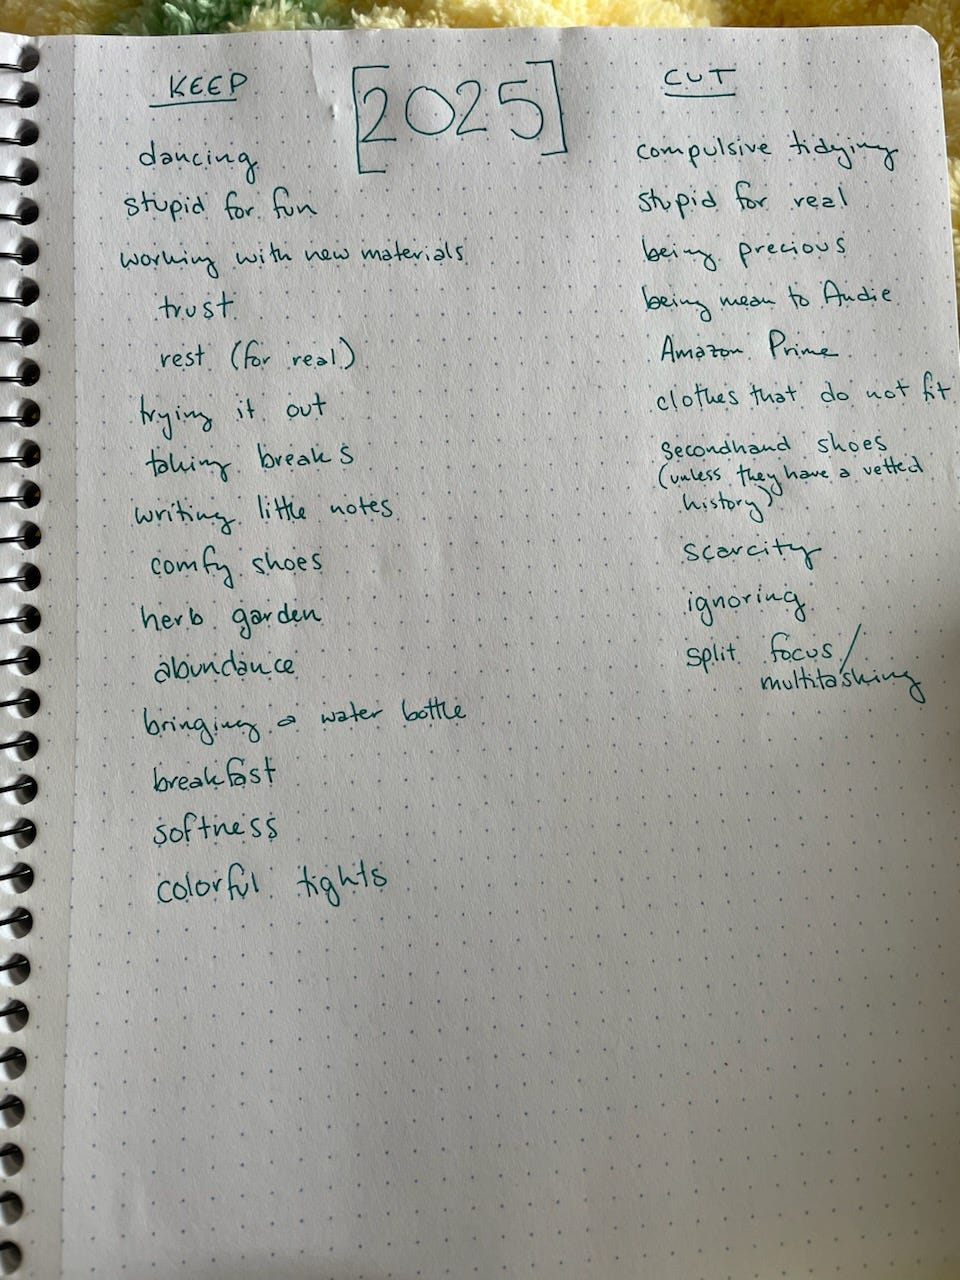 KEEP
[2025]
CUT
dancing
stupid for fun
working with new materials
trust
rest (for real)
trying it out
taking breaks
writing little notes
comfy shoes
herb garden
abundance
bringing a water bottle
breakfast
softness
colorful tights
compulsive tidying
stupid for real
being precious
being mean to Audie
Amazon Prime
clothes that do not fit
secondhand shoes
(unless they have a vetted
history)
scarcity
ignoring
split focus/
multitasking